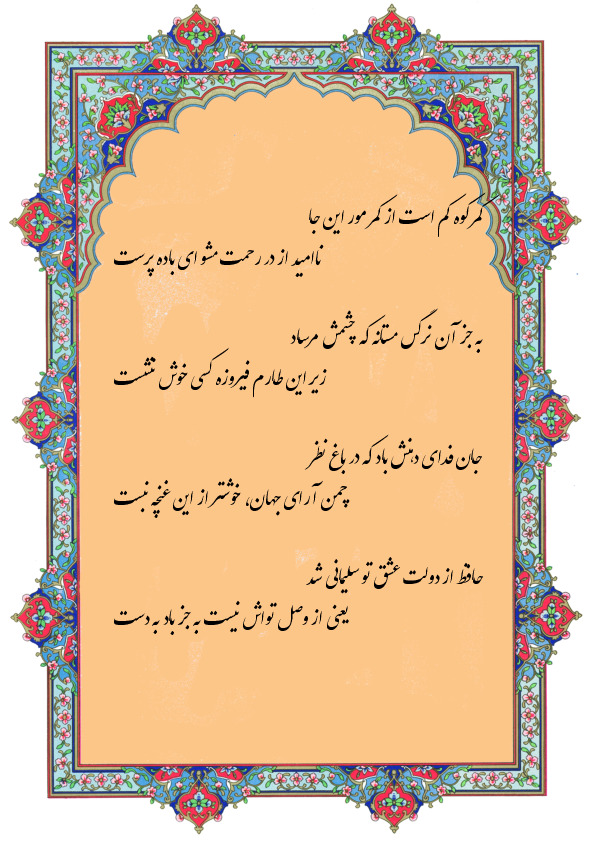 کمر کوه کم است از کمر مور این جا
ناامید از در رحمت مشو ای باده پرست
به جز آن نرگس مستانه که چشمش مرساد
زیر این طارم فیروزه کسی خوش ننشست
جان فدای دهنش باد که در باغ نظر
چمن آرای جهان، خوشتر از این غنچه نبست
حافظ از دولت عشق تو سلیمانی شد
یعنی از وصل تواش نیست به جز باد به دست